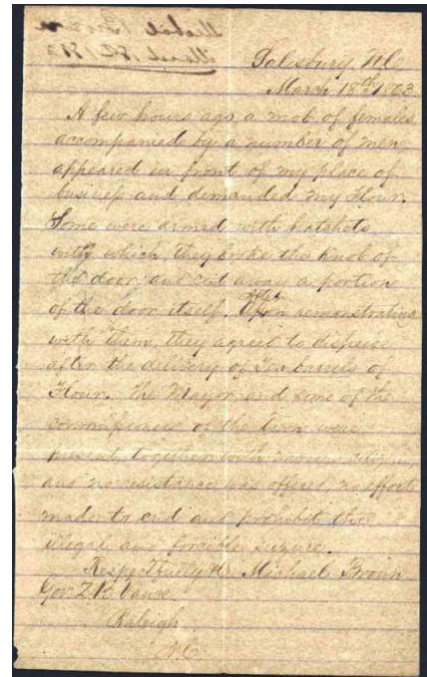 Salisbury N.C.
March 18th 1863
A few hours ago a mob of females
accompanied by a number of men
appeared in front of my place of
business and demanded my Flour.
Some were armed with hatchets
with which, they broke the knob of
the door, and cut away a portion
of the door itself. After remonstrating
with them, they agreed to disperse
after the delivery of Ten barrels of
Flour. The Mayor and some of the
commissioners of the town were
present, together with
and no resistance was offered, no effort
made to end and prohibit this
illegal and forcible seizure.
Respectfully Michael Brown
Gov. Z. B. Vance
Raleigh
N.C.